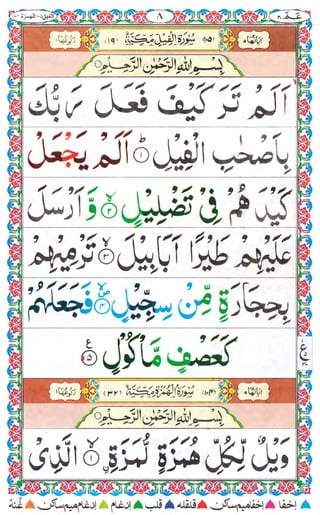 عَمَّ ٣٠ ٨ الفيل ١٠٥ الهمزة
اٰيَاتُهَا ٥ (١٠٥) سُوْرَةُ الْفِيْلِ مَكِّيَّةٌ (١٩) رُكُوْعُهَا ١
بِسْمِ اللّٰهِ الرَّحْمٰنِ الرَّحِيْمِ
اَلَمْ تَرَ كَيْفَ فَعَلَ رَبُّكَ
بِاَصْحٰبِ الْفِيْلِ ؕ ١ اَلَمْ يَجْعَلْ
كَيْدَ هُمْ فِىْ تَضْلِيْلٍ ۙ ٢ وَّ اَرْسَلَ
عَلَيْهِمْ طَيْرًا اَبَابِيْلَ ۙ ٣ تَرْمِيْهِمْ
بِحِجَارَةٍ مِّنْ سِجِّيْلٍ ۙ ٤ فَجَعَلَهُمْ
كَعَصْفٍ مَّاْكُوْلٍ ٥ ع
اٰيَاتُهَا ٩ (١٠٤) سُوْرَةُ الْهُمَزَةِ مَكِّيَّةٌ (٣٢) رُكُوْعُهَا ١
بِسْمِ اللّٰهِ الرَّحْمٰنِ الرَّحِيْمِ
وَيْلٌ لِّكُلِّ هُمَزَةٍ لُّمَزَةِ ۙ ١ اِ۟لَّذِىْ
اخفا اخفا میم ساکن قلقله قلب ادغام ادغام میم ساکن غنه